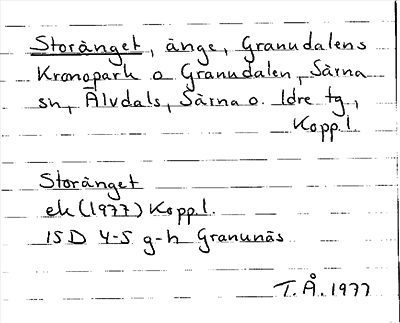 Storänget, änge, Granudalens
Kronopark o Granudalen, Särna
sn, Älvdals, Särna o. Idre tg,
Kopp.l.
Storänget
ek (1977) Kopp.l.
15D 4-5 g-h Granunäs
T.Å. 1977